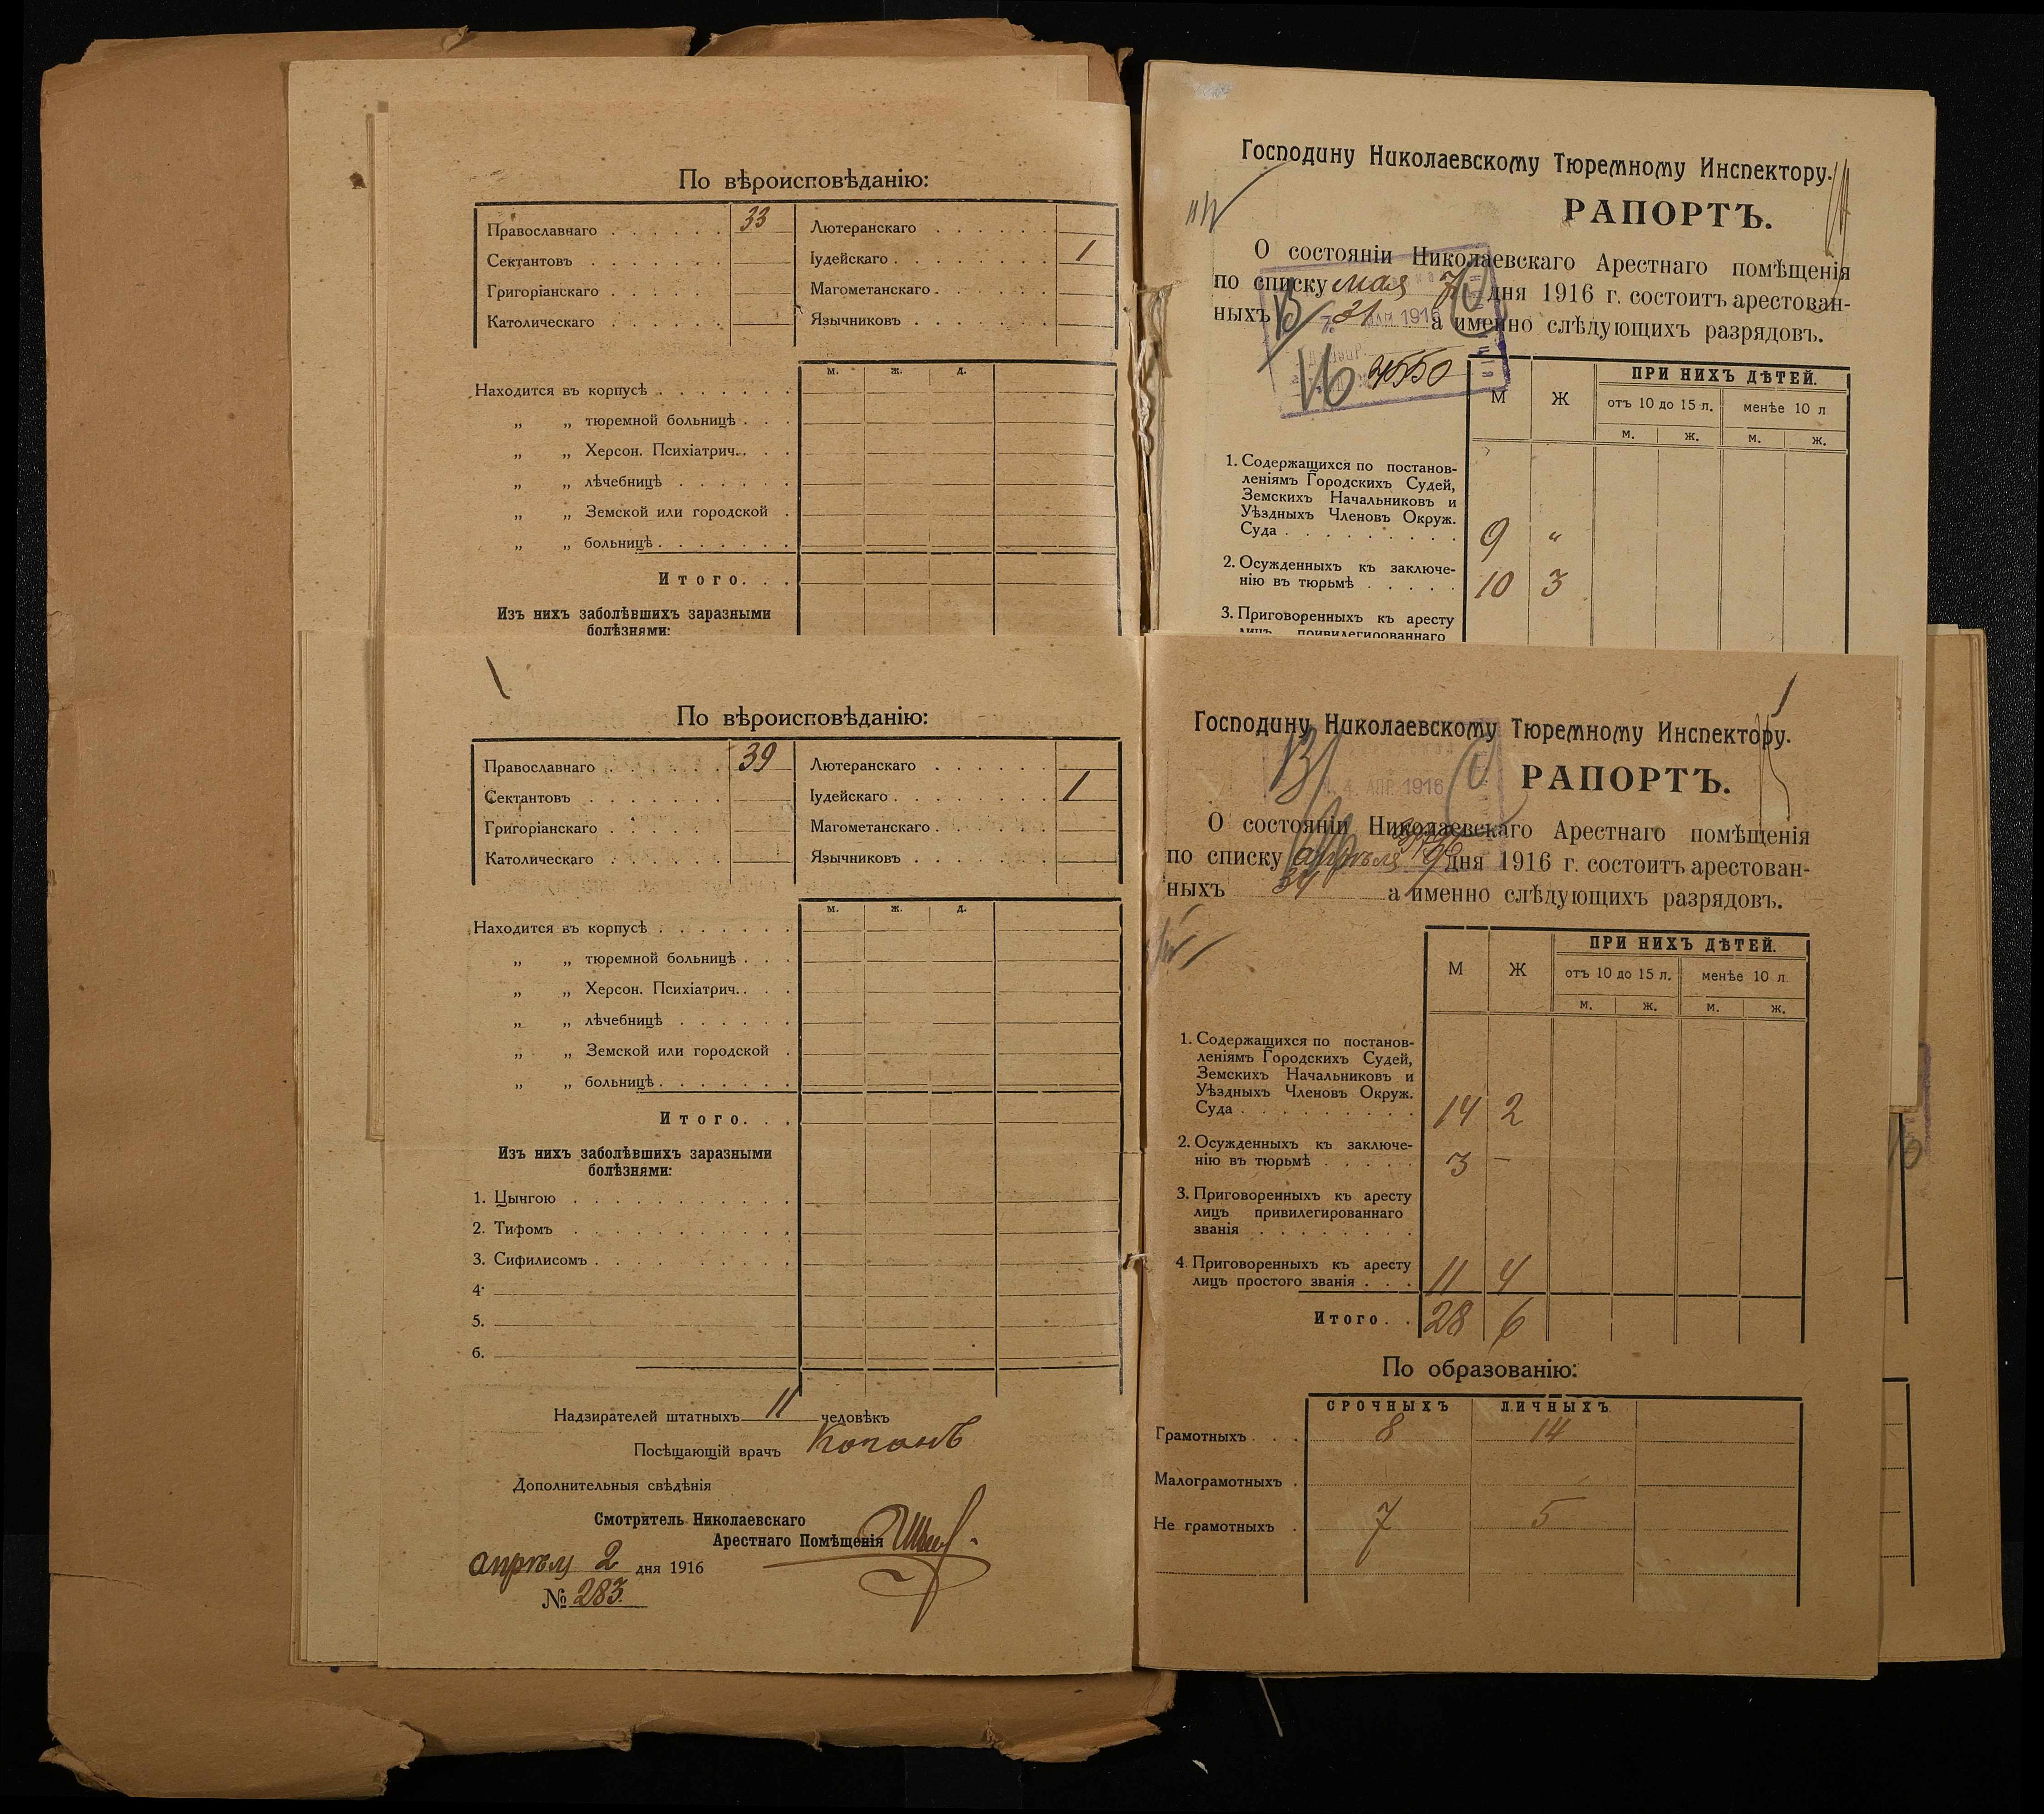 По вѣроисповѣданію:
Православнаго . . . . . . 33
Сектантовъ . . . . . .
Григоріанскаго . . . . .
Католическаго . . . . . .
Лютеранскаго . . . . . .
Іудейскаго . . . . . . . . 1
Магометанскаго . . . . . .
Язычниковъ . . . . . . .
м. ж. д.
Находится въ корпусѣ . . . . . . .
„ „ тюремной больницѣ . . .
„ „ Херсон. Психіатрич. . . .
„ „ лѣчебницѣ . . . . . .
„ „ Земской или городской .
„ „ больницѣ . . . . . . .
Итого. . .
Изъ нихъ заболѣвшихъ заразными
болѣзнями:
Господину Николаевскому Тюремному Инспектору.
РАПОРТЪ.
О состояніи Николаевскаго Арестнаго помѣщенія
по списку мая 7 дня 1916 г. состоитъ арестован-
ныхъ 31 а именно слѣдующихъ разрядовъ.
1916
4550
М Ж ПРИ НИХЪ ДѢТЕЙ.
отъ 10 до 15 л. менѣе 10 л
м. ж. м. ж.
1. Содержащихся по постанов-
леніямъ Городскихъ Судей,
Земскихъ Начальниковъ и
Уѣздныхъ Членовъ Окруж.
Суда . . . . . . . . . 9 „
2. Осужденныхъ къ заключе-
нію въ тюрьмѣ . . . . . 10 3
3. Приговоренныхъ къ аресту
лицъ привилегированнаго
По вѣроисповѣданію:
Православнаго . . . . . . 39
Сектантовъ . . . . . .
Григоріанскаго . . . . .
Католическаго . . . . . .
Лютеранскаго . . . . . .
Іудейскаго . . . . . . . . 1
Магометанскаго . . . . . .
Язычниковъ . . . . . . .
м. ж. д.
Находится въ корпусѣ . . . . . . .
„ „ тюремной больницѣ . . .
„ „ Херсон. Психіатрич. . . .
„ „ лѣчебницѣ . . . . . .
„ „ Земской или городской .
„ „ больницѣ . . . . . . .
Итого. . .
Изъ нихъ заболѣвшихъ заразными
болѣзнями:
1. Цынгою . . . . . . . . . . .
2. Тифомъ . . . . . . . . . . .
3. Сифилисомъ . . . . . . . . . .
4.
5.
6.
Надзирателей штатныхъ 11 человѣкъ
Посѣщающій врачъ
Дополнительныя свѣдѣнія
Смотритель Николаевскаго
Арестнаго Помѣщенія
апрѣля 2 дня 1916
№ 283.
Господину Николаевскому Тюремному Инспектору.
РАПОРТЪ.
4. АПР. 1916
О состояніи Николаевскаго Арестнаго помѣщенія
по списку апрѣля дня 1916 г. состоитъ арестован-
ныхъ 34 а именно слѣдующихъ разрядовъ.
М Ж ПРИ НИХЪ ДѢТЕЙ.
отъ 10 до 15 л. менѣе 10 л
м. ж. м. ж.
1. Содержащихся по постанов-
леніямъ Городскихъ Судей,
Земскихъ Начальниковъ и
Уѣздныхъ Членовъ Окруж.
Суда . . . . . . . . . 14 2
2. Осужденныхъ къ заключе-
нію въ тюрьмѣ . . . . . 3 –
3. Приговоренныхъ къ аресту
лицъ привилегированнаго
званія . . . . . . . .
4. Приговоренныхъ къ аресту
лицъ простого званія . . . 11 4
Итого. . 28 6
По образованію:
СРОЧНЫХЪ ЛИЧНЫХЪ
Грамотныхъ . . . 8 14
Малограмотныхъ .
Не грамотныхъ . 7 5